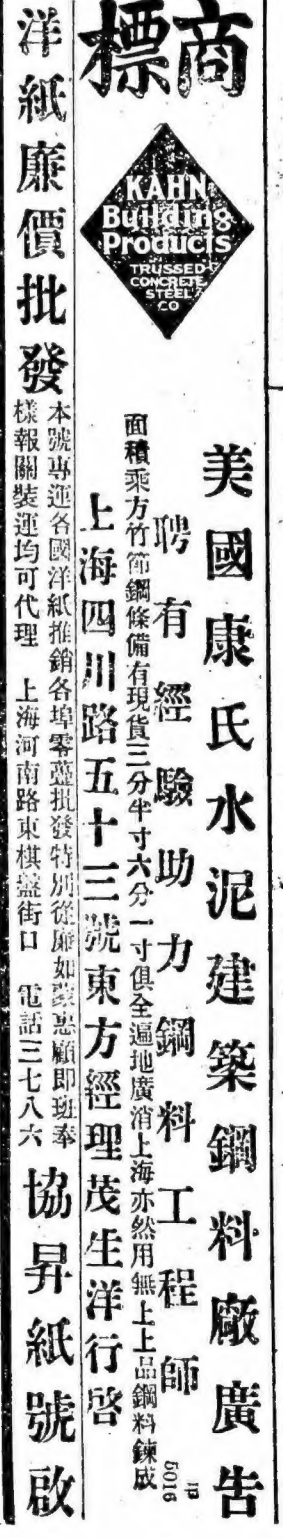 商標
KAHN
Building
Products
TRUSSED
CONCRETE
STEEL
CO
美國康氏水泥建築鋼料廠廣告
聘有經驗助力鋼料工程師
面積乘方竹節鋼條備有現貨三分半寸六分一寸俱全遍地廣消上海亦然用無上上品鋼料鍊成
上海四川路五十三號東方經理茂生洋行啓
5016
洋紙廉價批發
本號專運各國洋紙推銷各埠零躉批發特別從廉如蒙惠顧即班奉
樣報關裝運均可代理 上海河南路東棋盤街口 電話三七八六
協昇紙號啟